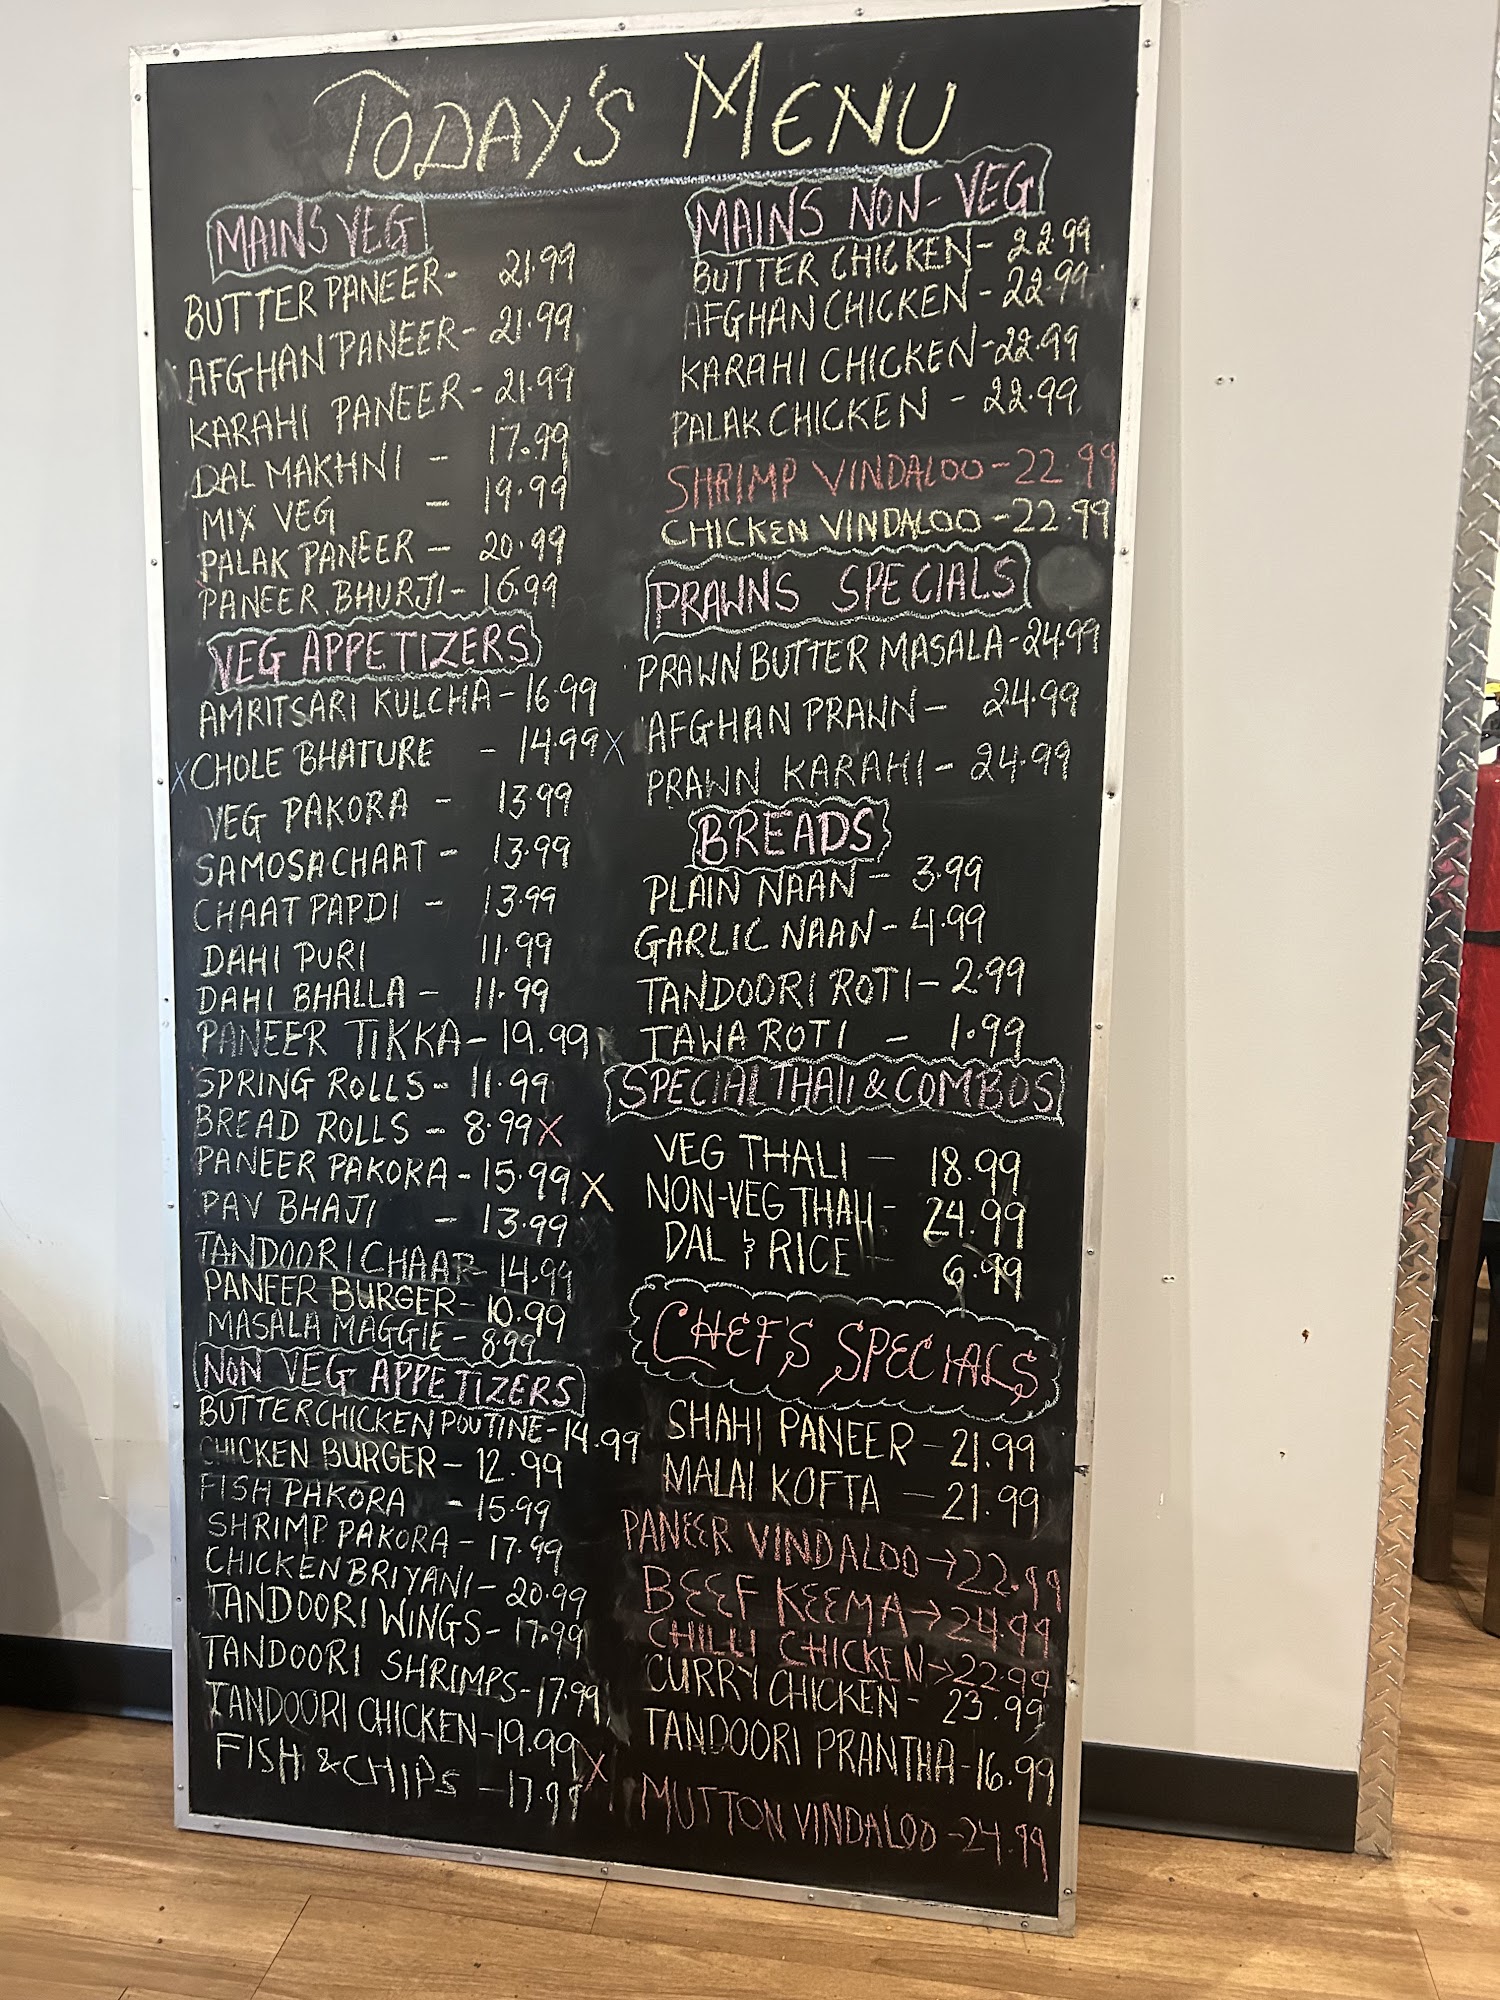 TODAY'S MENU
MAINS VEG
BUTTER PANEER- 21.99
AFGHAN PANEER- 21.99
KARAHI PANEER- 21.99
DAL MAKHNI - 17.99
MIX VEG - 19.99
PALAK PANEER - 20.99
PANEER BHURJI- 16.99
VEG APPETIZERS
AMRITSARI KULCHA- 16.99
X CHOLE BHATURE - 14.99 X
VEG PAKORA - 13.99
SAMOSA CHAAT - 13.99
CHAAT PAPDI - 13.99
DAHI PURI 11.99
DAHI BHALLA - 11.99
PANEER TIKKA- 19.99
SPRING ROLLS- 11.99
BREAD ROLLS - 8.99 X
PANEER PAKORA -15.99 X
PAV BHAJI - 13.99
TANDOORI CHAAP- 14.99
PANEER BURGER- 10.99
MASALA MAGGIE- 8.99
NON VEG APPETIZERS
BUTTER CHICKEN POUTINE-14.99
CHICKEN BURGER- 12.99
FISH PAKORA - 15.99
SHRIMP PAKORA - 17.99
CHICKEN BRIYANI- 20.99
TANDOORI WINGS- 17.99
TANDOORI SHRIMPS-17.99
TANDOORI CHICKEN-19.99
FISH & CHIPS -17.99 X
MAINS NON-VEG
BUTTER CHICKEN- 22.99
AFGHAN CHICKEN- 22.99
KARAHI CHICKEN-22.99
PALAK CHICKEN - 22.99
SHRIMP VINDALOO-22.99
CHICKEN VINDALOO-22.99
PRAWNS SPECIALS
PRAWN BUTTER MASALA-24.99
AFGHAN PRAWN- 24.99
PRAWN KARAHI- 24.99
BREADS
PLAIN NAAN - 3.99
GARLIC NAAN- 4.99
TANDOORI ROTI- 2.99
TAWA ROTI - 1.99
SPECIAL THALI & COMBOS
VEG THALI - 18.99
NON-VEG THALI- 24.99
DAL & RICE - 9.99
CHEF'S SPECIALS
SHAHI PANEER-21.99
MALAI KOFTA -21.99
PANEER VINDALOO→22.99
BEEF KEEMA→24.99
CHILLI CHICKEN→22.99
CURRY CHICKEN- 23.99
TANDOORI PRANTHA-16.99
MUTTON VINDALOO-24.99